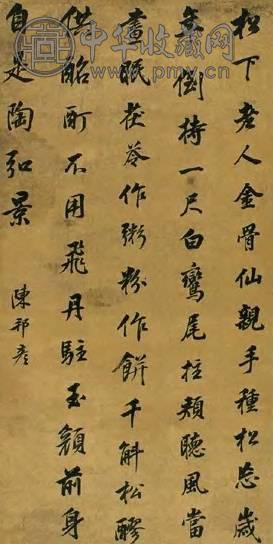 松下老人金骨仙親手種松忘歲
年倒持一尺白鸞尾拄頰聽風當
晝眠茯苓作粥粉作餅千斛松醪
供酩酊不用飛丹駐玉顏前身
自是陶弘景
陳邦彥
中华收藏网